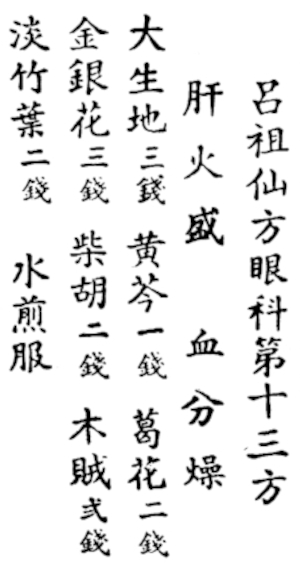 呂祖仙方眼科第十三方
肝火盛 血分燥
大生地三錢 黄芩一錢 葛花二錢
金銀花三錢 柴胡二錢 木賊弍錢
淡竹葉二錢 水煎服